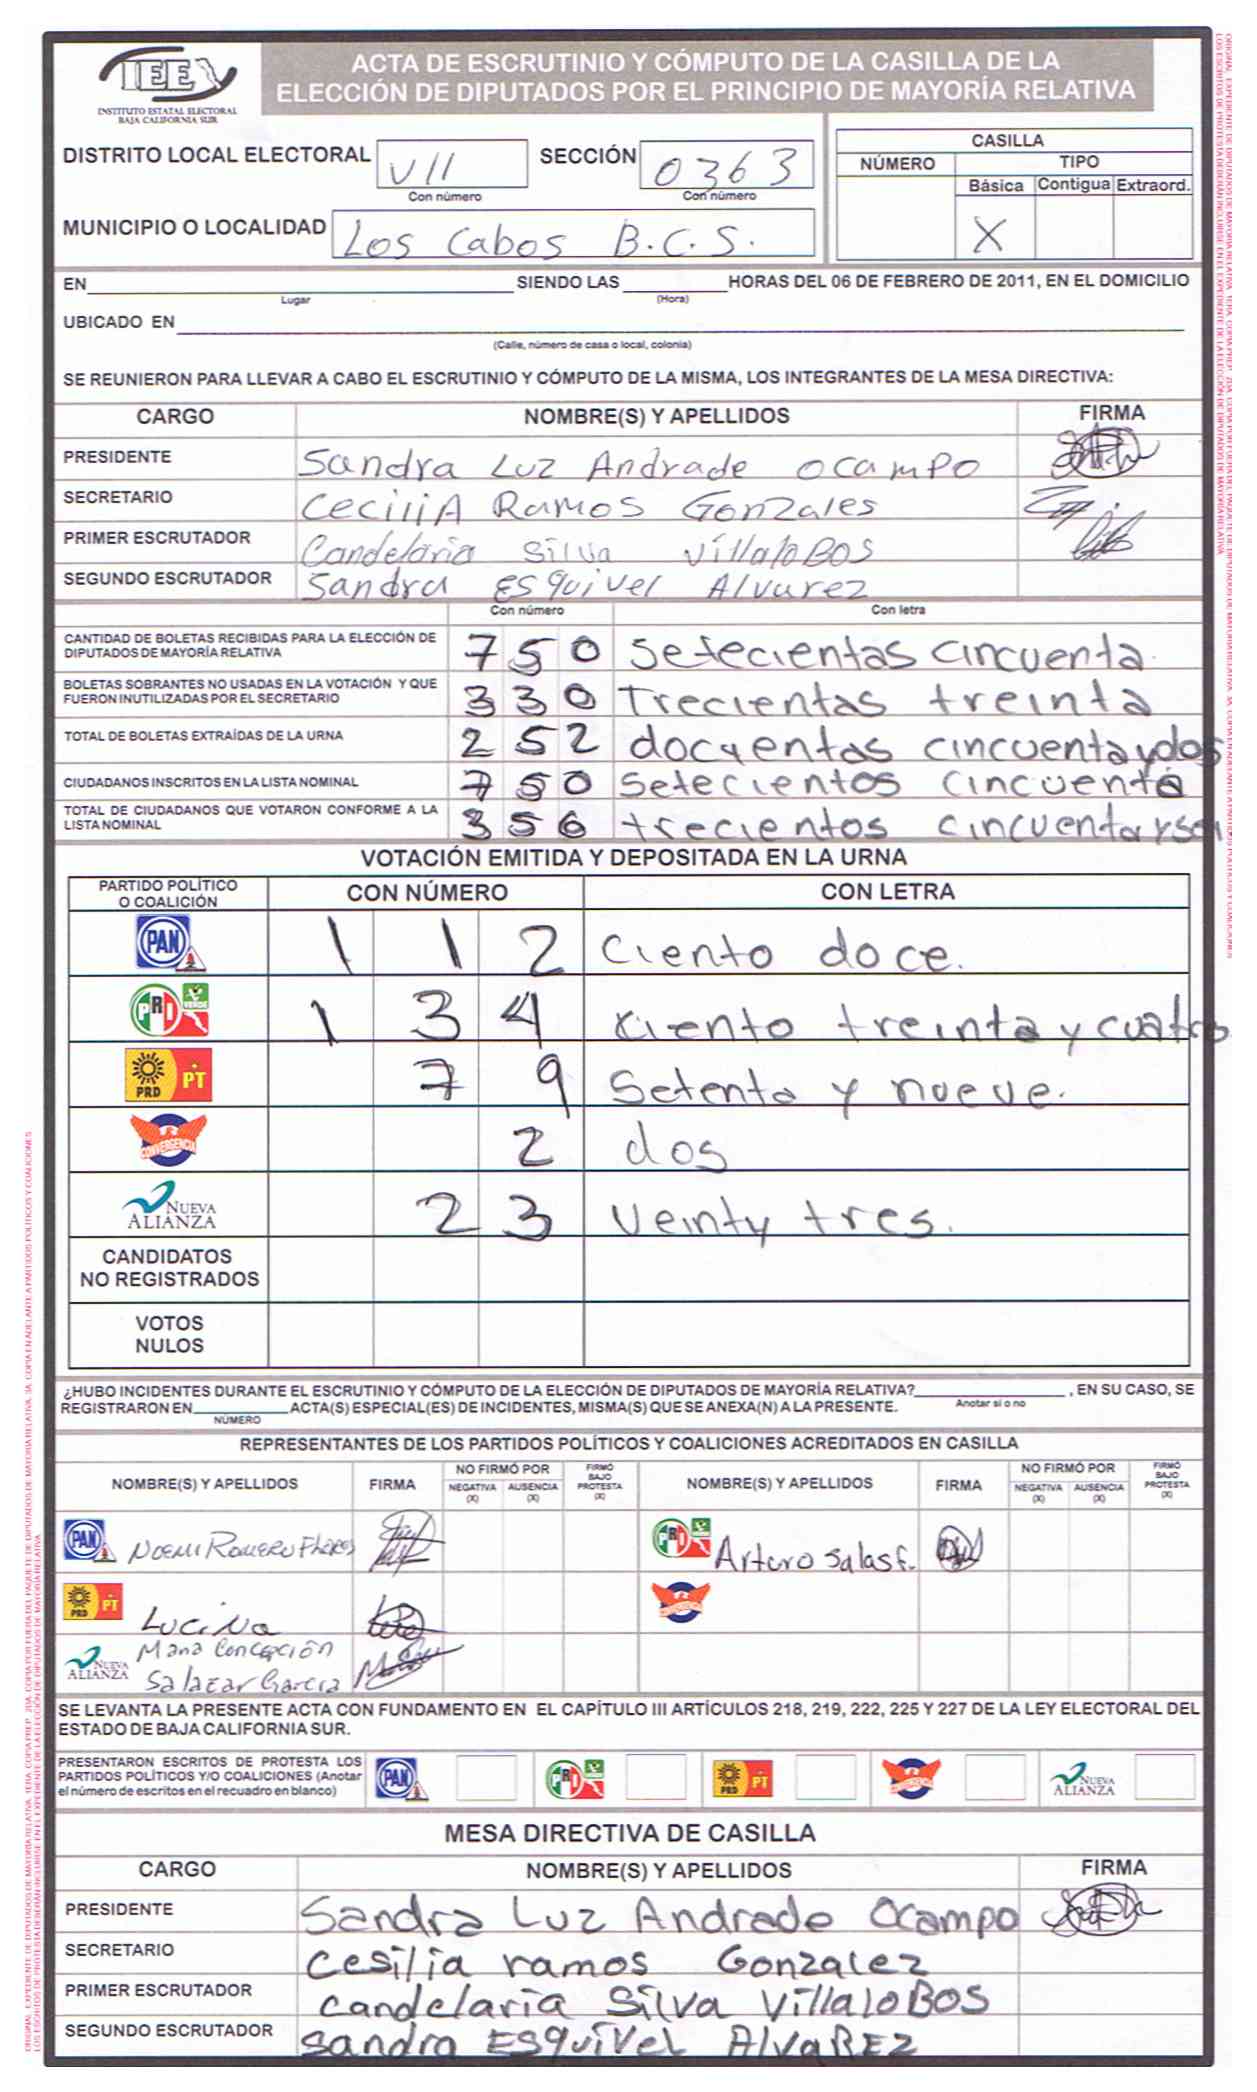 IEE
INSTITUTO ESTATAL ELECTORAL
BAJA CALIFORNIA SUR
ACTA DE ESCRUTINIO Y CÓMPUTO DE LA CASILLA DE LA
ELECCIÓN DE DIPUTADOS POR EL PRINCIPIO DE MAYORÍA RELATIVA
DISTRITO LOCAL ELECTORAL VII SECCIÓN 0363
Con número Con número
MUNICIPIO O LOCALIDAD Los Cabos B.C.S.
CASILLA
NÚMERO TIPO
Básica Contigua Extraord.
X
EN SIENDO LAS HORAS DEL 06 DE FEBRERO DE 2011, EN EL DOMICILIO
Lugar (Hora)
UBICADO EN
(Calle, número de casa o local, colonia)
SE REUNIERON PARA LLEVAR A CABO EL ESCRUTINIO Y CÓMPUTO DE LA MISMA, LOS INTEGRANTES DE LA MESA DIRECTIVA:
CARGO NOMBRE(S) Y APELLIDOS FIRMA
PRESIDENTE Sandra Luz Andrade Ocampo
SECRETARIO CeciliA Ramos Gonzales
PRIMER ESCRUTADOR Candelaria Silva VillaloBOS
SEGUNDO ESCRUTADOR Sandra ESquivel Alvarez
Con número Con letra
CANTIDAD DE BOLETAS RECIBIDAS PARA LA ELECCIÓN DE
DIPUTADOS DE MAYORÍA RELATIVA 750 Setecientas cincuenta
BOLETAS SOBRANTES NO USADAS EN LA VOTACIÓN Y QUE
FUERON INUTILIZADAS POR EL SECRETARIO 330 Trecientas treinta
TOTAL DE BOLETAS EXTRAÍDAS DE LA URNA 252 docientas cincuentaydos
CIUDADANOS INSCRITOS EN LA LISTA NOMINAL 750 Setecientos cincuenta
TOTAL DE CIUDADANOS QUE VOTARON CONFORME A LA
LISTA NOMINAL 356 trecientos cincuentaysei
VOTACIÓN EMITIDA Y DEPOSITADA EN LA URNA
PARTIDO POLÍTICO
O COALICIÓN CON NÚMERO CON LETRA
PAN 1 1 2 Ciento doce.
PRI VERDE 1 3 4 Ciento treinta y cuatro
PRD PT 7 9 Setenta y nueve.
CONVERGENCIA 2 dos
NUEVA
ALIANZA 2 3 Veinty tres.
CANDIDATOS
NO REGISTRADOS
VOTOS
NULOS
¿HUBO INCIDENTES DURANTE EL ESCRUTINIO Y CÓMPUTO DE LA ELECCIÓN DE DIPUTADOS DE MAYORÍA RELATIVA? , EN SU CASO, SE
Anotar sí o no
REGISTRARON EN ACTA(S) ESPECIAL(ES) DE INCIDENTES, MISMA(S) QUE SE ANEXA(N) A LA PRESENTE.
NÚMERO
REPRESENTANTES DE LOS PARTIDOS POLÍTICOS Y COALICIONES ACREDITADOS EN CASILLA
NOMBRE(S) Y APELLIDOS FIRMA NO FIRMÓ POR NEGATIVA (X) AUSENCIA (X) FIRMÓ BAJO PROTESTA (X) NOMBRE(S) Y APELLIDOS FIRMA NO FIRMÓ POR NEGATIVA (X) AUSENCIA (X) FIRMÓ BAJO PROTESTA (X)
PAN Noemi Romero Flores PRI Arturo Salas f.
PRD PT Lucina CONVERGENCIA
NUEVA ALIANZA Maria Concepción
Salazar Garcia
SE LEVANTA LA PRESENTE ACTA CON FUNDAMENTO EN EL CAPÍTULO III ARTÍCULOS 218, 219, 222, 225 Y 227 DE LA LEY ELECTORAL DEL
ESTADO DE BAJA CALIFORNIA SUR.
PRESENTARON ESCRITOS DE PROTESTA LOS
PARTIDOS POLÍTICOS Y/O COALICIONES (Anotar
el número de escritos en el recuadro en blanco)
PAN PRI PRD PT CONVERGENCIA NUEVA ALIANZA
MESA DIRECTIVA DE CASILLA
CARGO NOMBRE(S) Y APELLIDOS FIRMA
PRESIDENTE Sandra Luz Andrade Ocampo
SECRETARIO Cesilia ramos Gonzalez
PRIMER ESCRUTADOR Candelaria Silva VillaloBOS
SEGUNDO ESCRUTADOR Sandra ESquiVel AlvaREZ